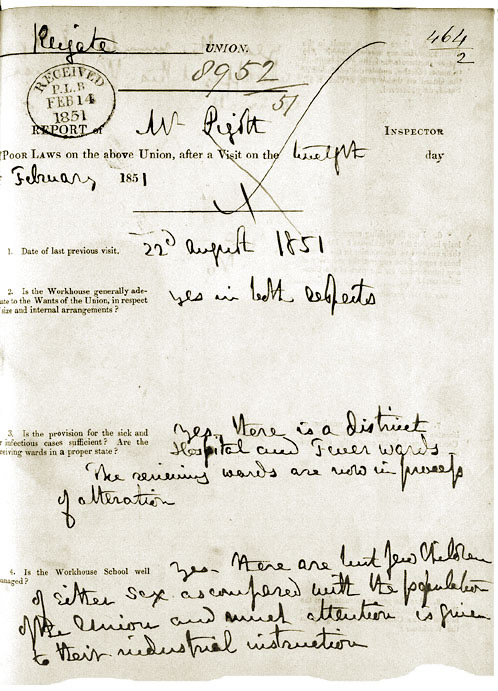 Reigate UNION.
464
2
8952
51
RECEIVED
P.L.B
FEB 14
1851
REPORT of Mr Pigott INSPECTOR
POOR LAWS on the above Union, after a Visit on the twelfth day
February 1851
1. Date of last previous visit. 22d august 1851
2. Is the Workhouse generally ade-
uate to the Wants of the Union, in respect
size and internal arrangements?
yes in both respects
3. Is the provision for the sick and
r infectious cases sufficient? Are the
ceiving wards in a proper state?
Yes. there is a district
Hospital and Fever wards
The receiving wards are now in process
of alteration
4. Is the Workhouse School well
anaged?
Yes - there are but few Children
of either sex as compared with the population
of the Union and much attention is given
to their industrial instruction